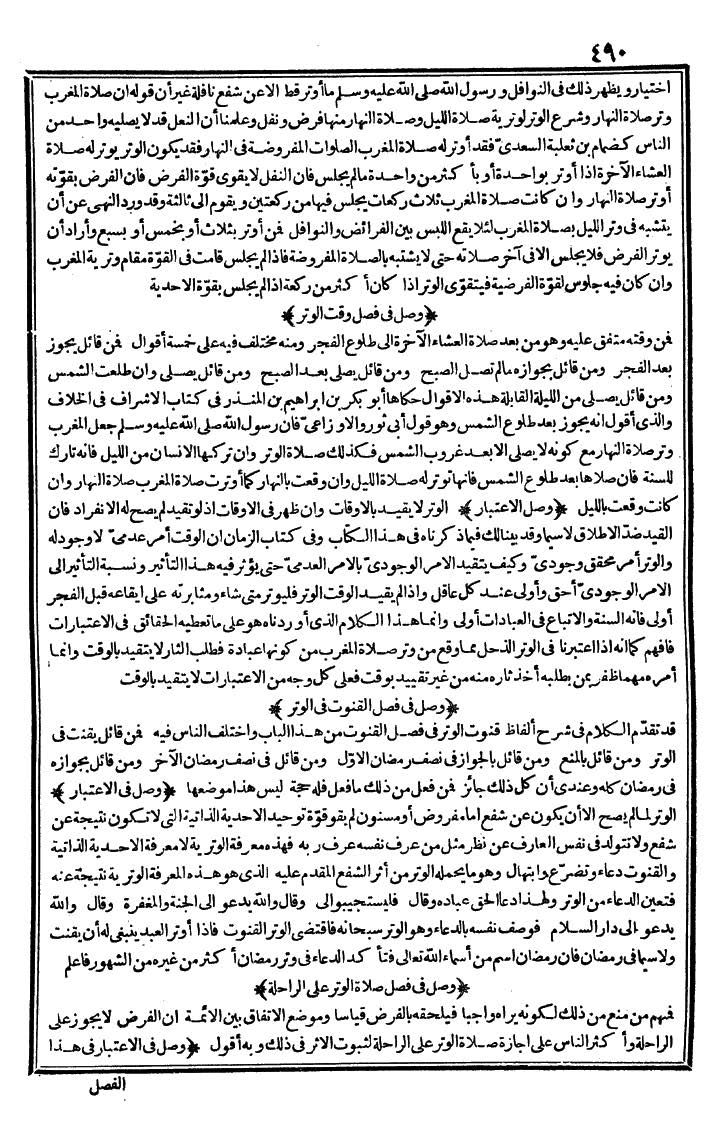 ٤٩٠
اختيار ويظهر ذلك فى النوافل ورسول الله صلى الله عليه وسلم ما أوتر قط الا عن شفع نافلة غير أن قوله ان صلاة المغرب
وتر صلاة النهار وشرع الوتر لوترية صلاة الليل وصلاة النهار منها فرض ونفل وعلمنا أن النفل قد لا يصليه واحد من
الناس كضمام بن ثعلبة السعدىّ فقد أوتر له صلاة المغرب الصلوات المفروضة فى النهار فقد يكون الوتر يوتر له صلاة
العشاء الآخرة اذا أوتر بواحدة أو بأكثر من واحدة مالم يجلس فان النفل لا يقوى قوّة الفرض فان الفرض بقوّته
أوتر صلاة النهار وان كانت صلاة المغرب ثلاث ركعات يجلس فيها من ركعتين ويقوم الى ثالثة وقد ورد النهى عن أن
يتشبه فى وتر الليل بصلاة المغرب لئلا يقع اللبس بين الفرائض والنوافل فمن أوتر بثلاث أو بخمس أو بسبع وأراد أن
يوتر الفرض فلا يجلس الا فى آخر صلاته حتى لا يشتبه بالصلاة المفروضة فاذا لم يجلس قامت فى القوّة مقام وترية المغرب
وان كان فيه جلوس لقوّة الفرضية فيتقوى الوتر اذا كان أكثر من ركعة اذا لم يجلس بقوّة الاحدية
﴿وصل فى فصل وقت الوتر﴾
فمن وقته متفق عليه وهو من بعد صلاة العشاء الآخرة الى طلوع الفجر ومنه مختلف فيه على خمسة أقوال فمن قائل يجوز
بعد الفجر ومن قائل بجوازه مالم تصل الصبح ومن قائل يصلى بعد الصبح ومن قائل يصلى وان طلعت الشمس
ومن قائل يصلى من الليلة القابلة هذه الاقوال حكاها أبو بكر بن ابراهيم بن المنذر فى كتاب الاشراف فى الخلاف
والذى أقول انه يجوز بعد طلوع الشمس وهو قول أبى ثور والاوزاعىّ فان رسول الله صلى الله عليه وسلم جعل المغرب
وتر صلاة النهار مع كونه لا يصلى الا بعد غروب الشمس فكذلك صلاة الوتر وان تركها الانسان من الليل فانه تارك
للسنة فان صلاها بعد طلوع الشمس فانها توتر له صلاة الليل وان وقعت بالنهار كما أوترت صلاة المغرب صلاة النهار وان
كانت وقعت بالليل ﴿وصل الاعتبار﴾ الوتر لا يقيد بالاوقات وان ظهر فى الاوقات اذ لو تقيد لم يصح له الانفراد فان
القيد ضدّ الاطلاق لا سيما وقد بينا لك فيما ذكرناه فى هذا الكتاب وفى كتاب الزمان ان الوقت أمر عدمىّ لا وجود له
والوتر أمر محقق وجودىّ وكيف يتقيد الامر الوجودىّ بالامر العدمىّ حتى يؤثر فيه هذا التأثير ونسبة التأثير الى
الامر الوجودىّ أحق وأولى عند كل عاقل واذا لم يقيد الوقت الوتر فليوتر متى شاء ومثابرته على ايقاعه قبل الفجر
أولى فانه السنة والاتباع فى العبادات أولى وانما هذا الكلام الذى أوردناه هو على ما تعطيه الحقائق فى الاعتبارات
فافهم كما انه اذا اعتبرنا فى الوتر الذحل مما وقع من وتر صلاة المغرب من كونها عبادة فطلب الثار لا يتقيد بالوقت وانما
أمره مهما ظفر بمن يطلبه أخذ ثاره منه من غير تقييد بوقت فعلى كل وجه من الاعتبارات لا يتقيد بالوقت
﴿وصل فى فصل القنوت فى الوتر﴾
قد تقدّم الكلام فى شرح ألفاظ قنوت الوتر فى فصل القنوت من هذا الباب واختلف الناس فيه فمن قائل يقنت فى
الوتر ومن قائل بالمنع ومن قائل بالجواز فى نصف رمضان الاوّل ومن قائل فى نصف رمضان الآخر ومن قائل بجوازه
فى رمضان كله وعندى أن كل ذلك جائز فمن فعل من ذلك ما فعل فله حجة ليس هذا موضعها ﴿وصل فى الاعتبار﴾
الوتر لما لم يصح الا أن يكون عن شفع اما مفروض أو مسنون لم يقو قوّة توحيد الاحدية الذاتية التى لا تكون نتيجة عن
شفع ولا تتولد فى نفس العارف عن نظر مثل من عرف نفسه عرف ربه فهذه معرفة الوترية لا معرفة الاحدية الذاتية
والقنوت دعاء وتضرّع وابتهال وهو ما يحمله الوتر من أثر الشفع المقدم عليه الذى هو هذه المعرفة الوترية نتيجة عنه
فتعين الدعاء من الوتر ولهذا دعا الحق عباده وقال فليستجيبوا لى وقال والله يدعو الى الجنة والمغفرة وقال والله
يدعو الى دار السلام فوصف نفسه بالدعاء وهو الوتر سبحانه فاقتضى الوتر القنوت فاذا أوتر العبد ينبغى له أن يقنت
ولا سيما فى رمضان فان رمضان اسم من أسماء الله تعالى فتأكد الدعاء فى وتر رمضان أكثر من غيره من الشهور فاعلم
﴿وصل فى فصل صلاة الوتر على الراحلة﴾
فمنهم من منع من ذلك لكونه يراه واجبا فيلحقه بالفرض قياسا وموضع الاتفاق بين الائمة ان الفرض لا يجوز على
الراحلة وأكثر الناس على اجازة صلاة الوتر على الراحلة لثبوت الاثر فى ذلك وبه أقول ﴿وصل فى الاعتبار فى هذا
الفصل